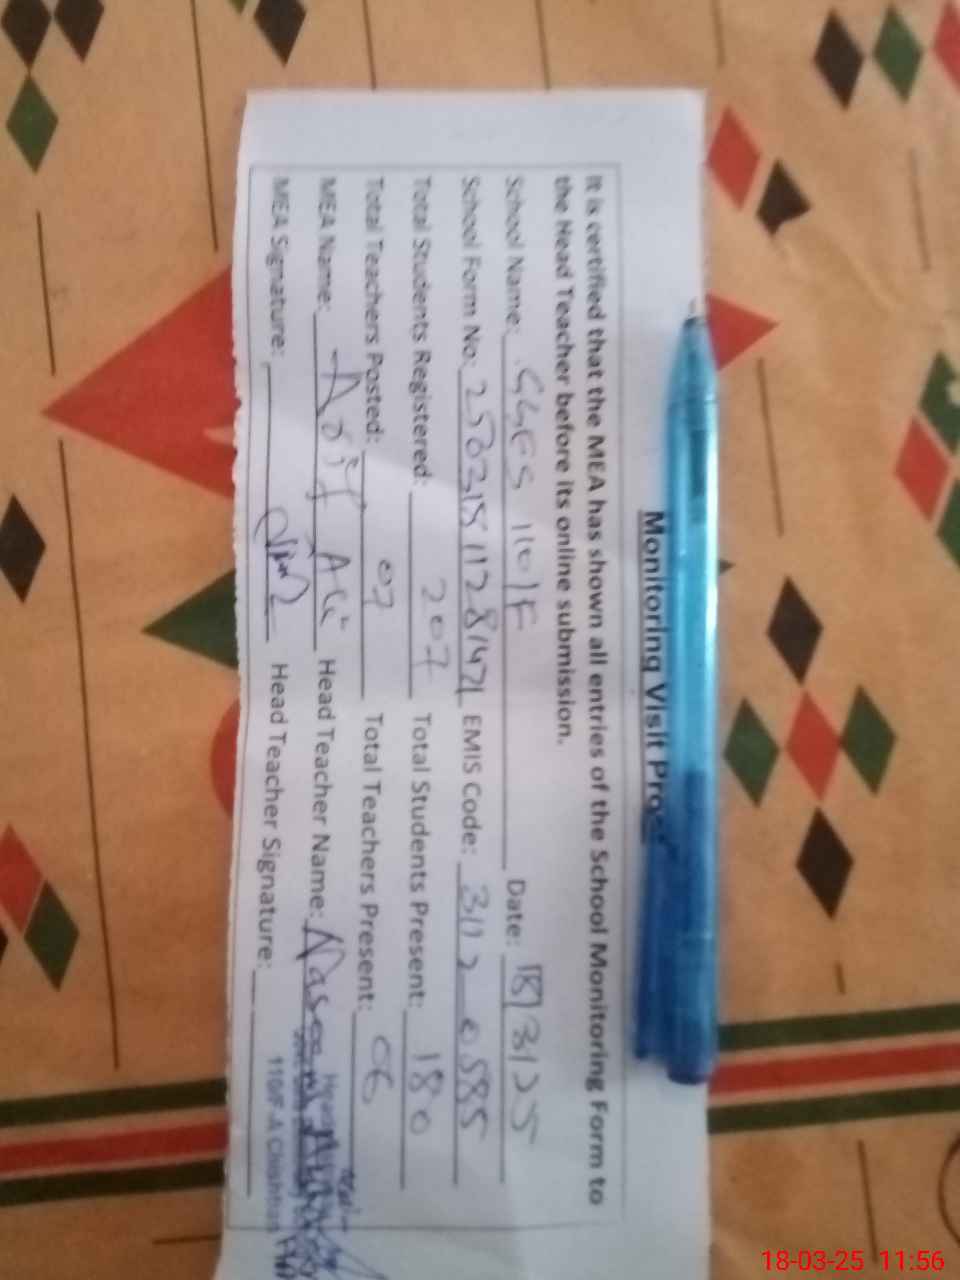 Monitoring Visit
It is certified that the MEA has shown all entries of the School Monitoring Form to
the Head Teacher before its online submission.
School Name: GGES 110/F Date: 18/3/25
School Form No: EMIS Code: 31120585
Total Students Registered: 207 Total Students Present: 180
Total Teachers Posted: 07 Total Teachers Present: 06
MEA Name: Ali Head Teacher Name:
MEA Signature: Head Teacher Signature:
110/F-A
18-03-25 11:56